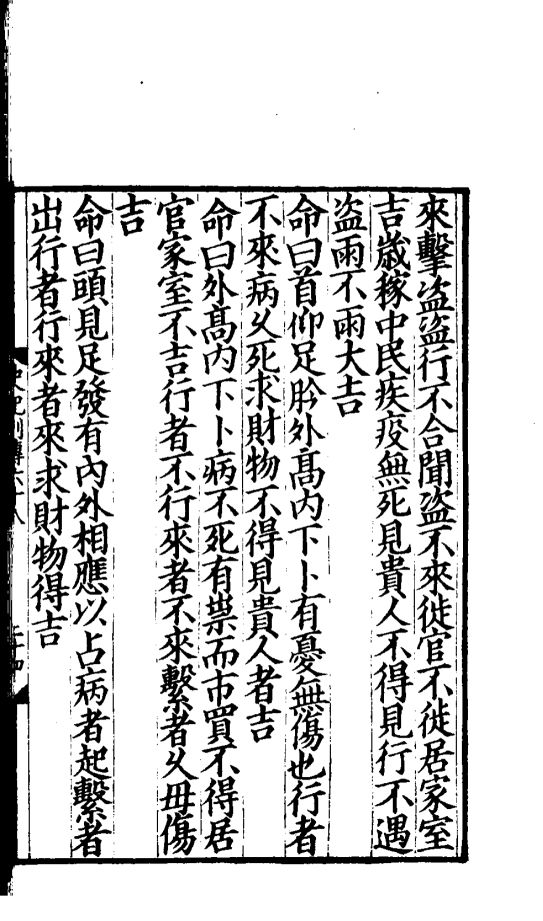 來擊盗盗行不合聞盗不來徙官不徙居家室
吉歲稼中民疾疫無死見貴人不得見行不遇
盗雨不雨大吉
命曰首仰足肣外髙内下卜有憂無傷也行者
不來病乆死求財物不得見貴人者吉
命曰外髙内下卜病不死有祟而市買不得居
官家室不吉行者不行來者不來繫者乆毋傷
吉
命曰頭見足發有内外相應以占病者起繫者
出行者行來者來求財物得吉
史記列傳六十八
二十四